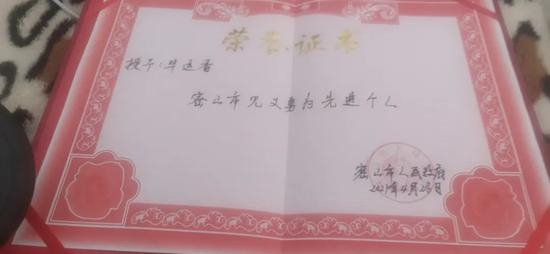 荣誉证书
授予:毕运香
密山市见义勇为先进个人
密山市人民政府
2021年4月28日